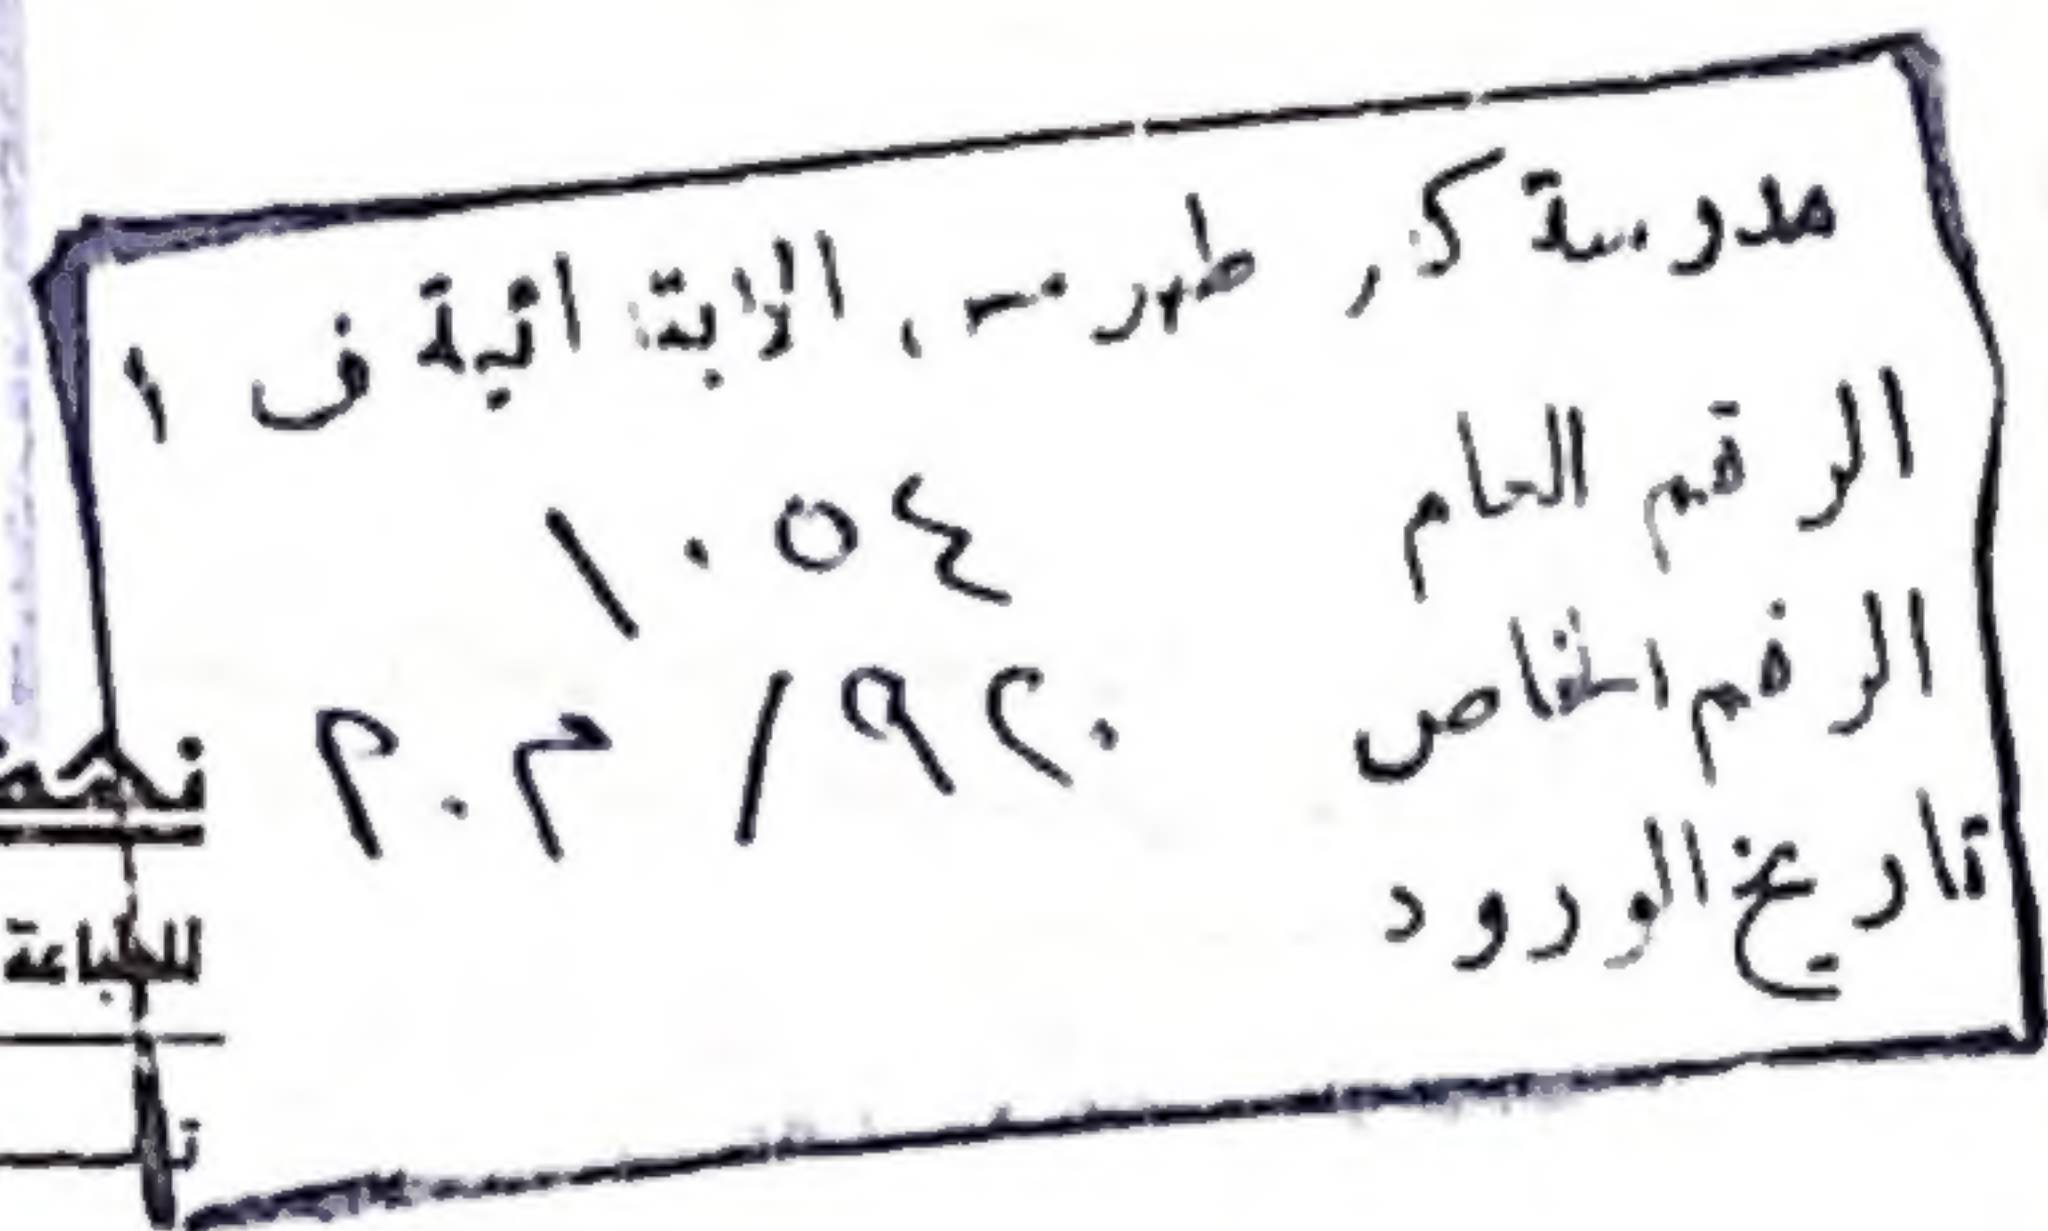 مدرسة كفر طهرمس الابتدائية ف ١
الرقم العام ١٠٥٤
الرقم الخاص ٩٢٠ / م.م
تاريخ الورود
للطباعة